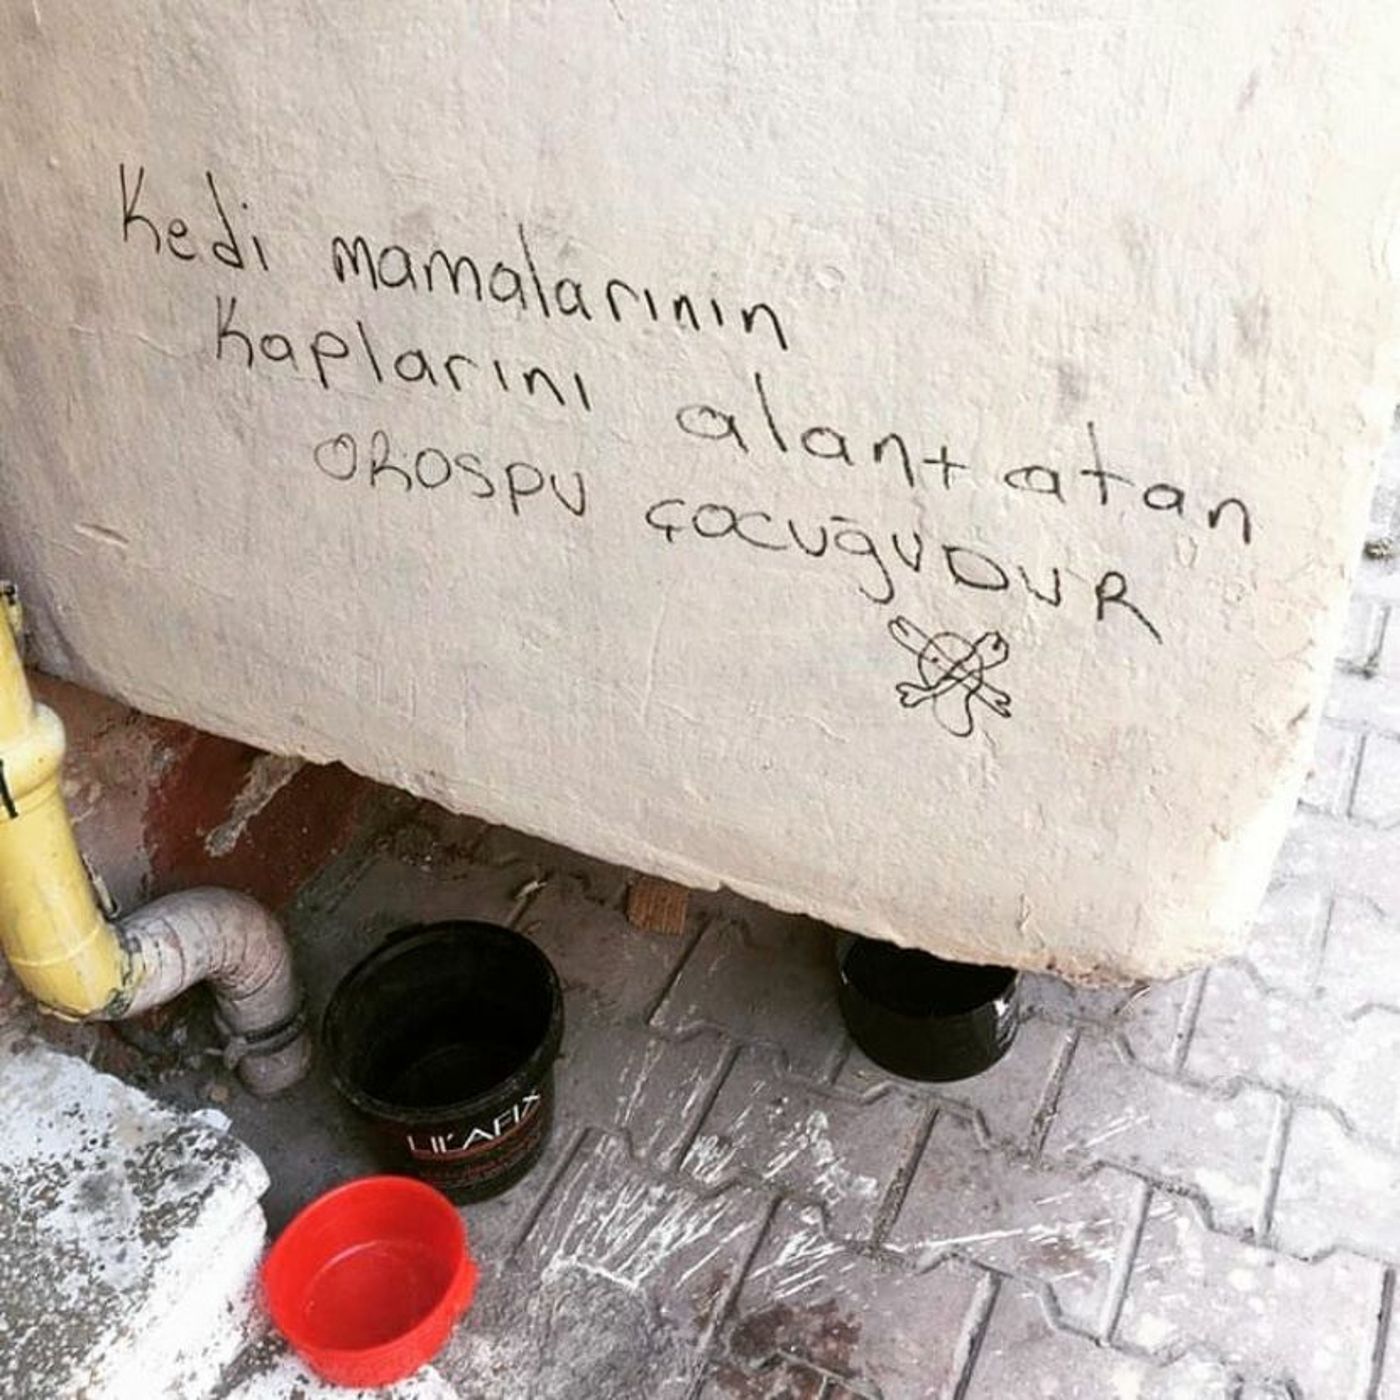 Kedi mamalarının
Kaplarını alan+atan
OROSPU çocuğuDUR
LİL'AFIX